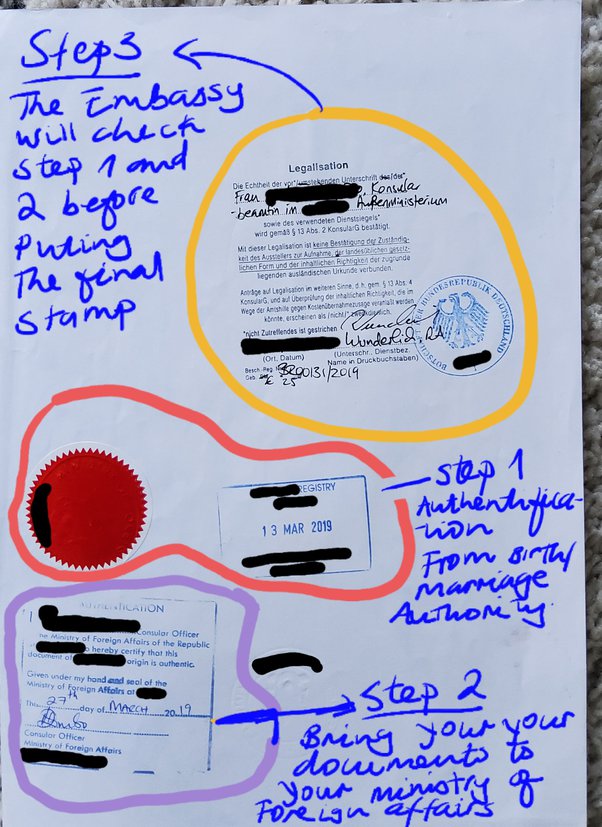 Step3
The Embassy
will check
step 1 and
2 before
Puting
The final
stamp
Legalisation
Die Echtheit der vor*/umstehenden Unterschrift des/der*
Frau Konsula
-beamtin im Außenministerium
sowie des verwendeten Dienstsiegels*
wird gemäß § 13 Abs. 2 KonsularG bestätigt.
Mit dieser Legalisation ist keine Bestätigung der Zuständig-
keit des Ausstellers zur Aufnahme, der landesüblichen gesetz-
lichen Form und der inhaltlichen Richtigkeit der zugrunde
liegenden ausländischen Urkunde verbunden.
Anträge auf Legalisation im weiteren Sinne, d. h. gem. § 13 Abs. 4
KonsularG, und auf Überprüfung der inhaltlichen Richtigkeit, die im
Wege der Amtshilfe gegen Kostenübernahmezusage veranlaßt werden
könnte, erscheinen als (nicht)* zweckdienlich.
*nicht Zutreffendes ist gestrichen
Wunderlich, RA
(Ort, Datum)
(Unterschr., Dienstbez.
Name in Druckbuchstaben)
Besch.-Reg. Nr.
00131/2019
Geb. 25
BUNDESREPUBLIK DEUTSCHLAND
REGISTRY
13 MAR 2019
Step 1
Authentifica-
-tion
From Birth/
marriage
Authority
AUTHENTICATION
I Consular Officer
the Ministry of Foreign Affairs of the Republic
do hereby certify that this
document of origin is authentic.
Given under my hand and seal of the
Ministry of Foreign Affairs at
This 27th day of MARCH 2019
Consular Officer
Ministry of Foreign Affairs
Step 2
Bring your your
documents to
your ministry of
Foreign affairs